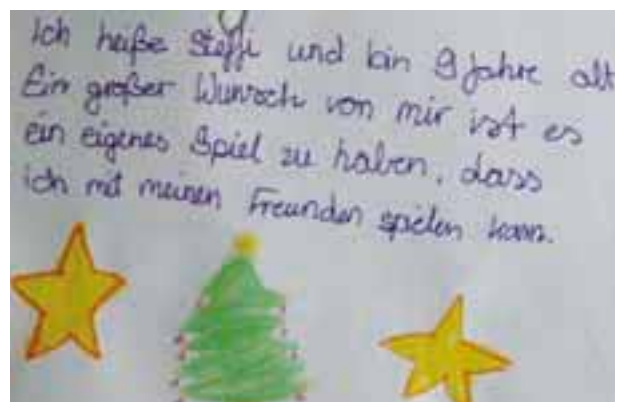 Ich heiße Steffi und bin 9 Jahre alt
Ein großer Wunsch von mir ist es
ein eigenes Spiel zu haben, dass
ich mit meinen Freunden spielen kann.